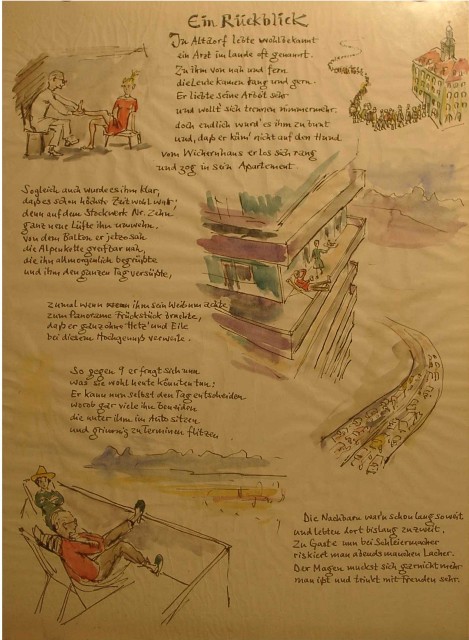 Ein Rückblick
In Altdorf lebte wohlbekannt
ein Arzt im Lande oft genannt.
Zu ihm von nah und fern
die Leute kamen lang und gern.
Er liebte seine Arbeit sehr
und wollt' sich trennen nimmermehr.
doch endlich wurd' es ihm zu bunt
und, daß er käm' nicht auf den Hund
vom Wichernhaus er los sich rang
und zog in sein Apartement.
Sogleich auch wurde es ihm klar,
daß es schon höchste Zeit wohl war;
denn auf dem Stockwerk Nr. Zehn
ganz neue Lüfte ihn umwehn.
von dem Balkon er jetzo sah
die Alpenkette greifbar nah,
die ihn allmorgendlich begrüßte
und ihm den ganzen Tag versüßte,
zumal wenn ihm sein Weib um achte
zum Panorama Frückstück brachte,
daß er ganz ohne Hetz' und Eile
bei diesem Hochgenuß verweile.
So gegen 9 er fragt sich nun
was sie wohl heute könnten tun:
Er kann nun selbst den Tag entscheiden
worob gar viele ihn beneiden
die unter ihm im Auto sitzen
und grimmig zu Terminen flitzen
Die Nachbarn war'n schon lang soweit
und lebten dort bislang zu zweit,
Zu Gaste nun bei Schleiermacher
riskiert man abends manchen Lacher.
Der Magen muckst sich garnicht mehr
man ißt und trinkt mit Freuden sehr.